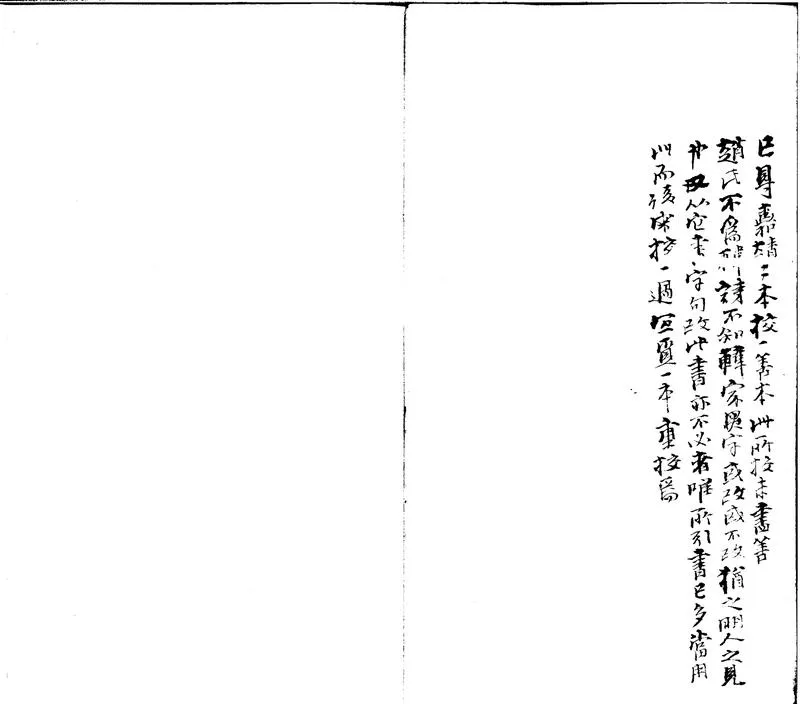 已見嘉靖二本校一善本此所校未盡善
趙氏不為無識不知韓家根字或改或不改猶之明人之見
也從它書字句改此書亦不必者唯所引書已多當用
此而復成校一過宜置一本重校為